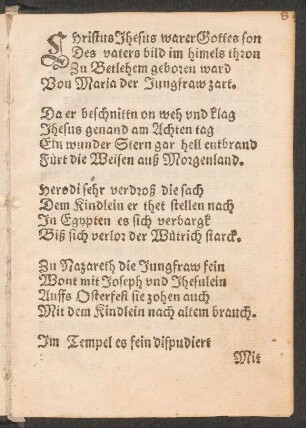 CHristus Jhesus warer Gottes son
Des vaters bild im himels thron
Zu Betlehem geboren ward
Von Maria der Jungfraw zart.
Da er beschnittn on weh vnd klag
Jhesus genand am Achten tag
Ein wunder Stern gar hell entbrand
Fürt die Weisen auß Morgenland.
Herodi sehr verdroß die sach
Dem Kindlein er thet stellen nach
In Egypten es sich verbargk
Biß sich verlor der Wütrich starck.
Zu Nazareth die Jungfraw fein
Wont mit Joseph vnd Jhesulein
Auffs Osterfest sie zohen auch
Mit dem Kindlein nach altem brauch.
Im Tempel es fein dispudiert
Mit